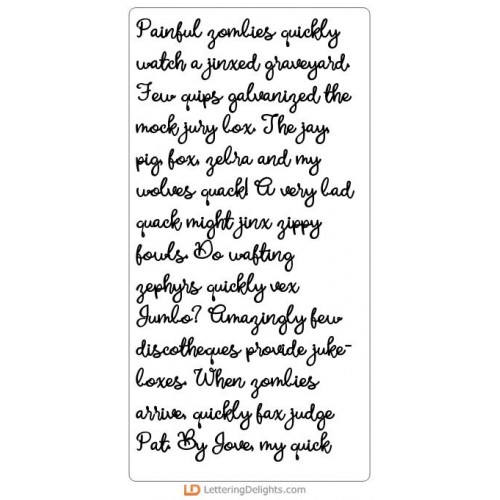 Painful zombies quickly
watch a jinxed graveyard.
Few quips galvanized the
mock jury box. The jay,
pig, fox, zebra and my
wolves quack! A very bad
quack might jinx zippy
fowls. Do wafting
zephyrs quickly vex
Jumbo? Amazingly few
discotheques provide juke-
boxes. When zombies
arrive, quickly fax judge
Pat. By Jove, my quick
LD LetteringDelights.com